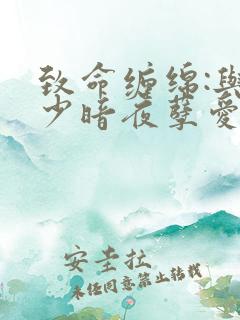 致命缠绵:与
少暗夜孽爱
安圭拉
未经同意禁止转载